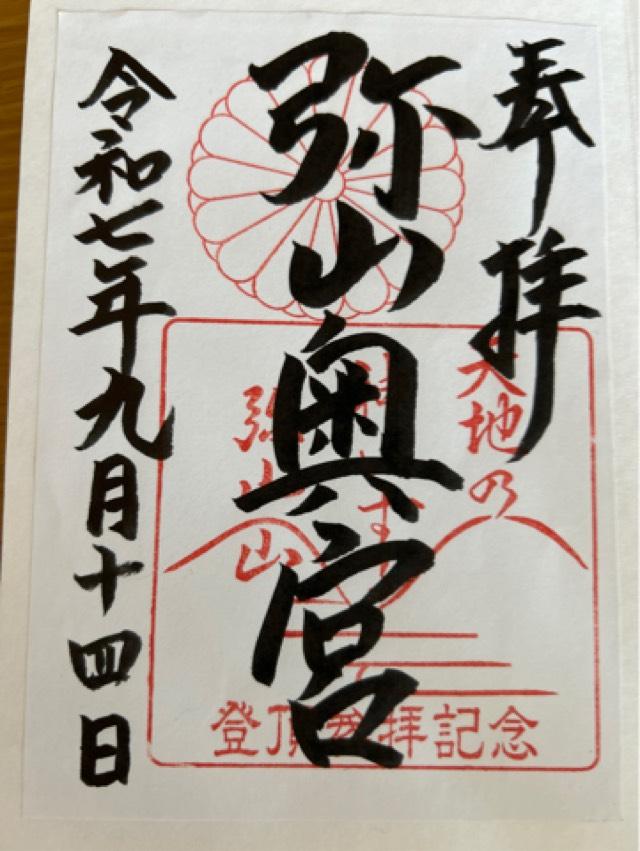 奉拝
弥山奥宮
令和七年九月十四日
天地の
弥山山
登頂参拝記念